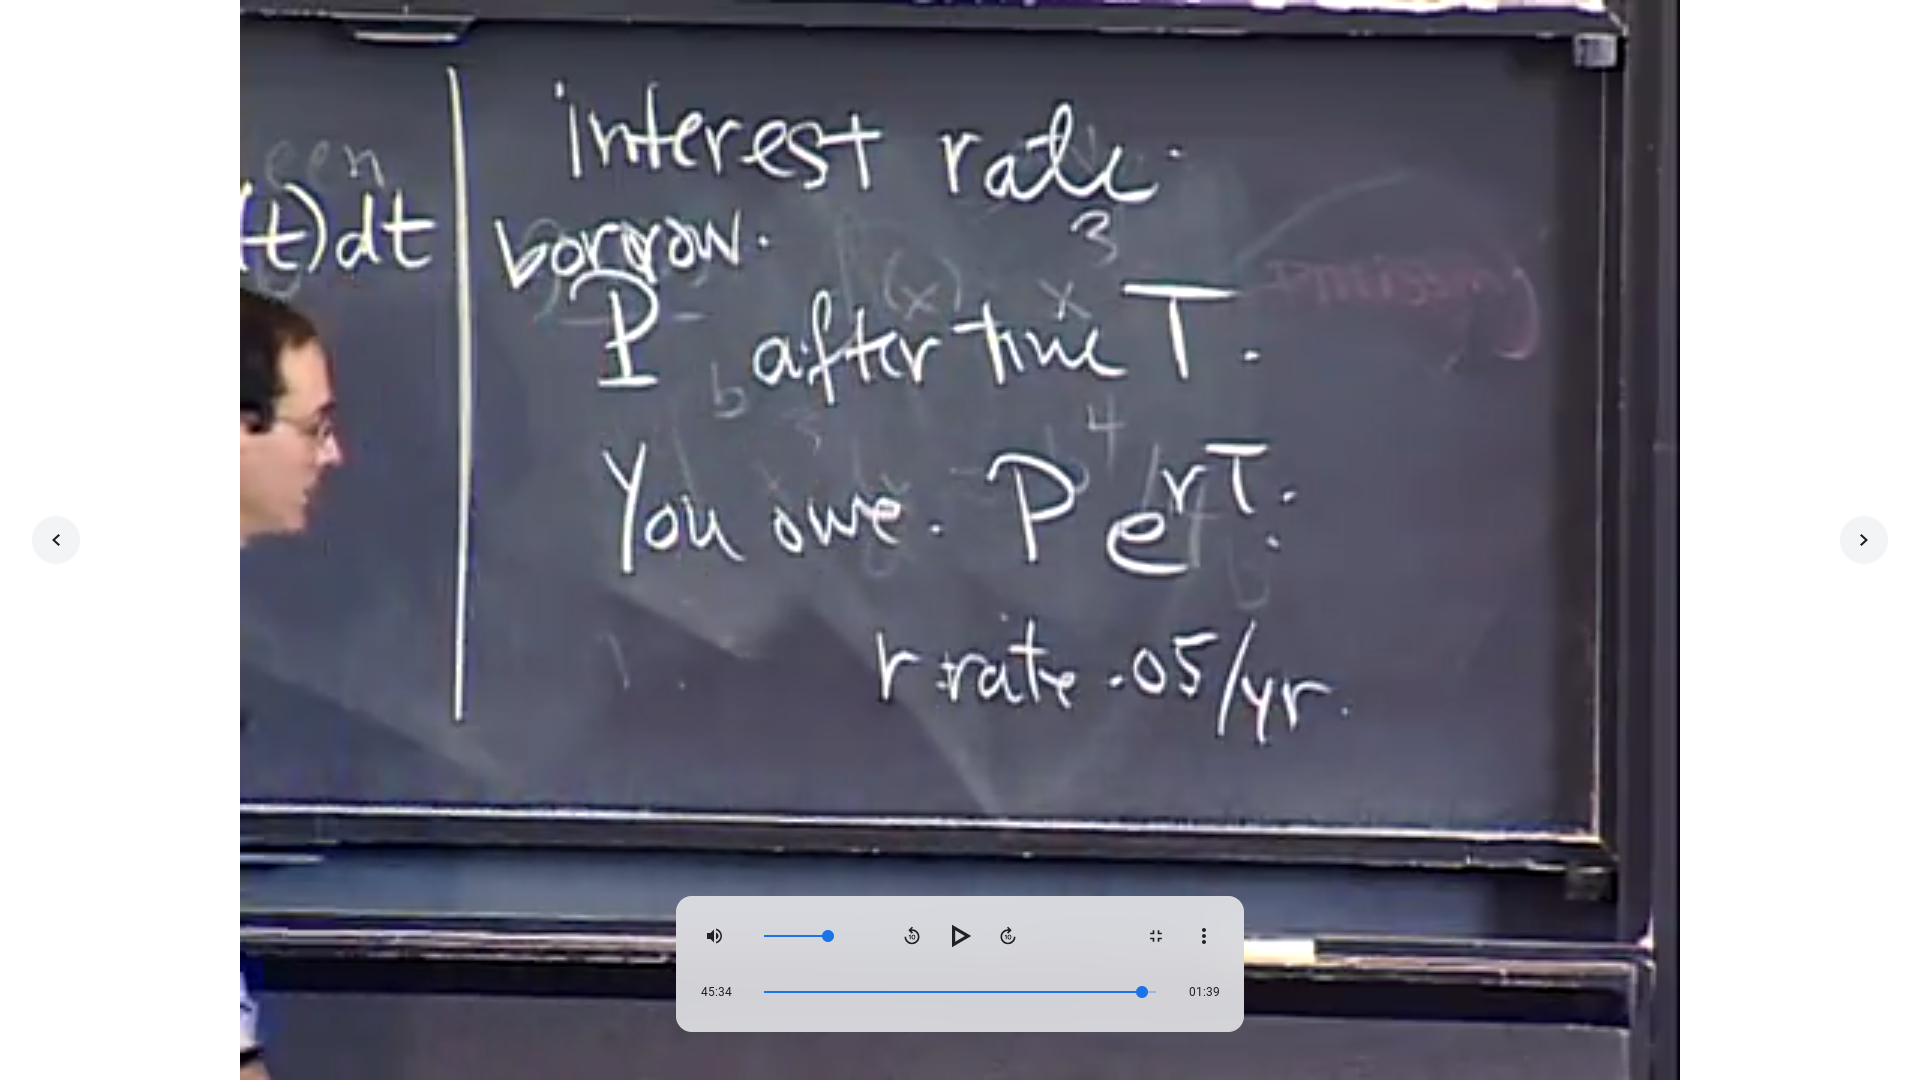 (t)dt
interest rate.
borrow.
P after time T.
You owe. P e^{rT}.
r rate .05/yr.
45:34
01:39